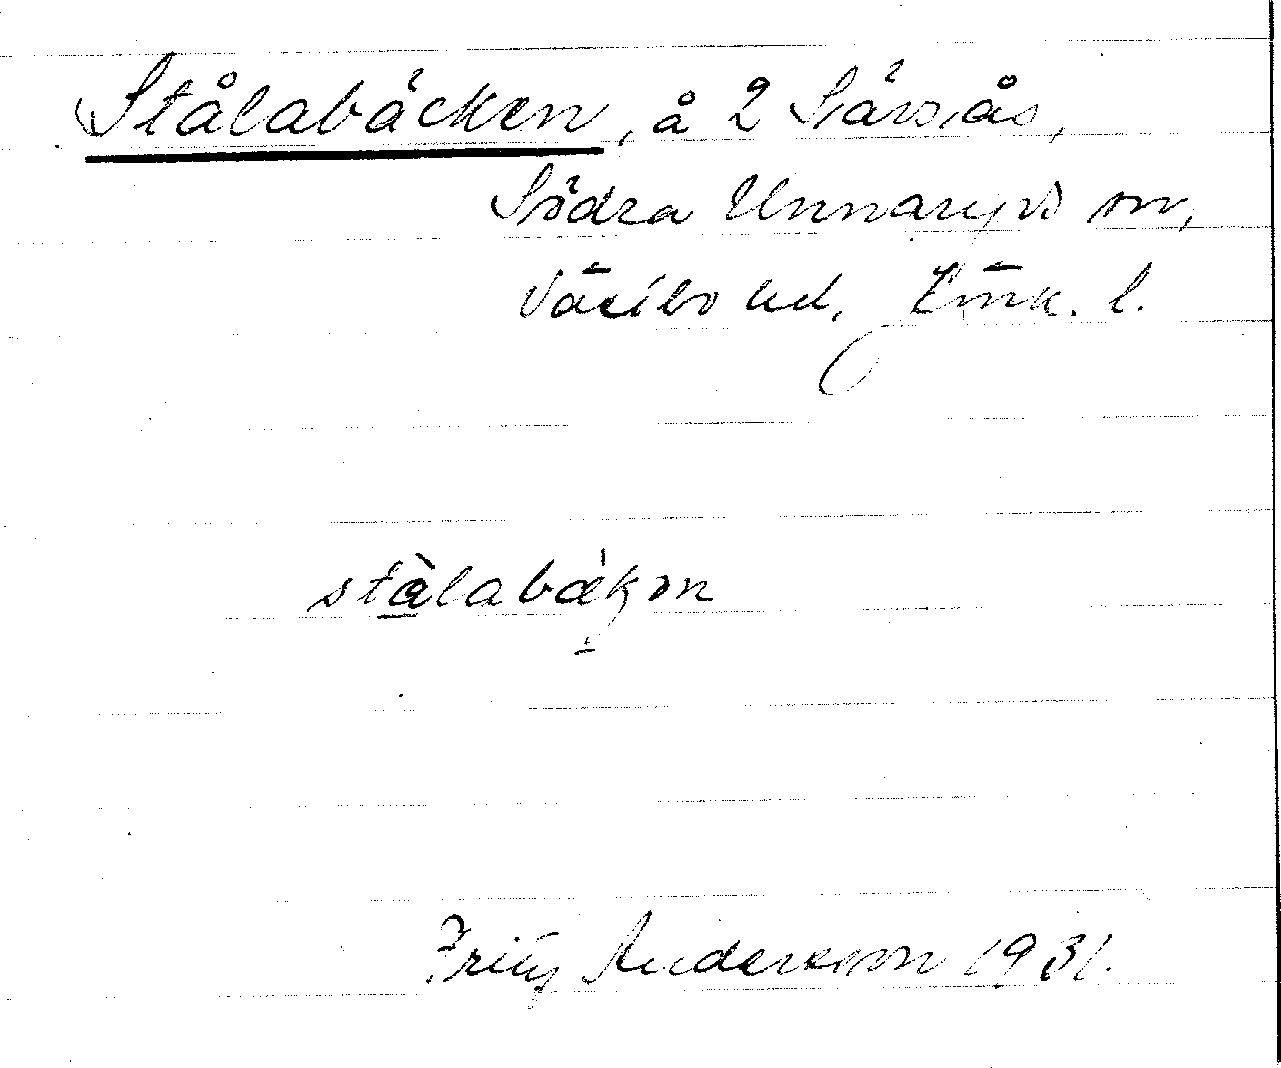 Stålabäcken, å 2 Särsås,
Södra Unnaryds sn,
Västbo hd, Jönk. l.
stålabäkən
Fritz Andersson 1931.